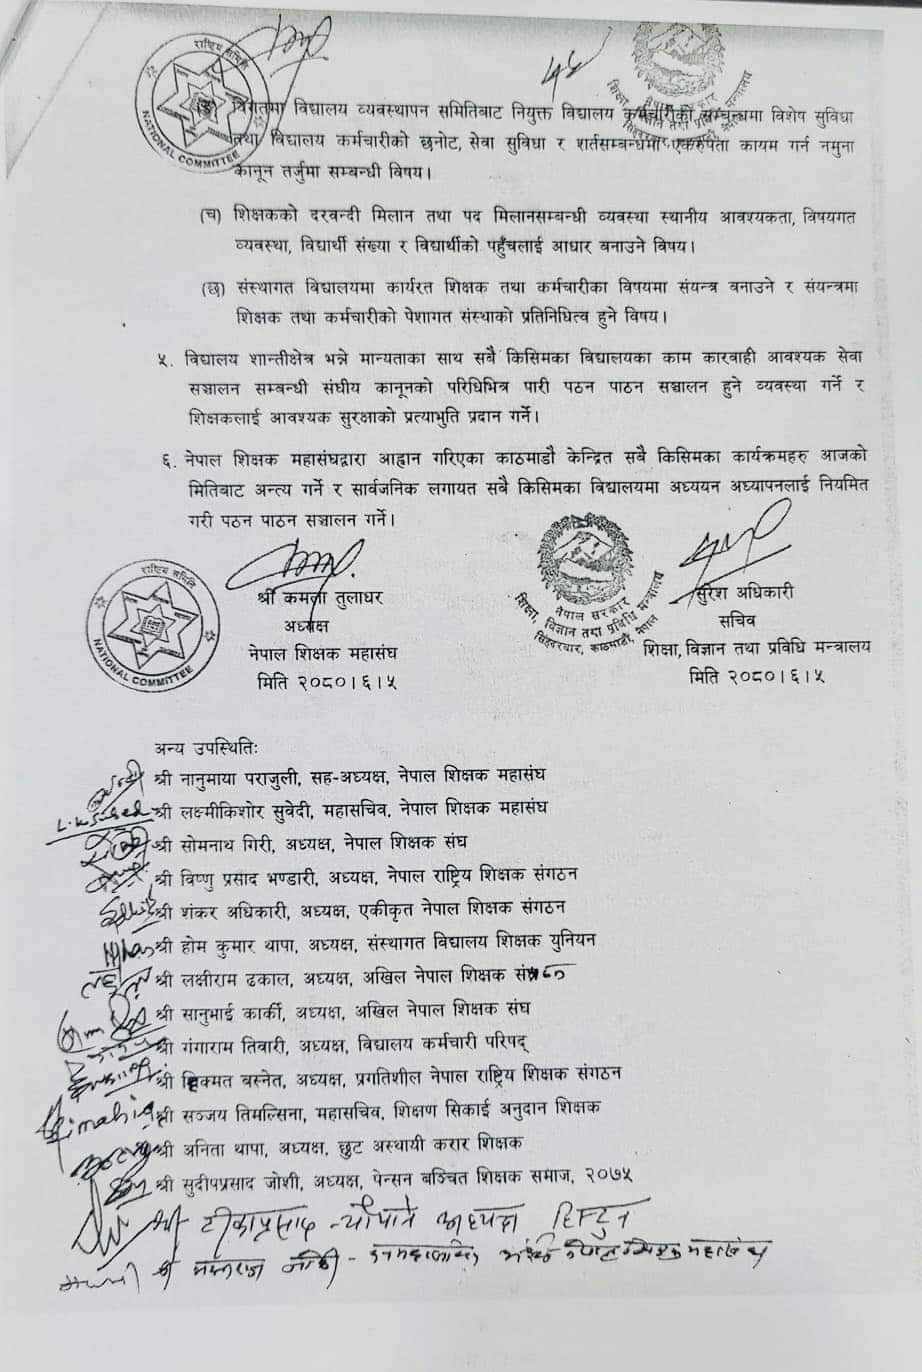 राष्ट्रिय समिति
NATIONAL COMMITTEE
विगतमा विद्यालय व्यवस्थापन समितिबाट नियुक्त विद्यालय कर्मचारीको सम्बन्धमा विशेष सुविधा
तथा विद्यालय कर्मचारीको छनोट, सेवा सुविधा र शर्तसम्बन्धमा एकरुपता कायम गर्न नमुना
कानून तर्जुमा सम्बन्धी विषय।
(च) शिक्षकको दरवन्दी मिलान तथा पद मिलानसम्बन्धी व्यवस्था स्थानीय आवश्यकता, विषयगत
व्यवस्था, विद्यार्थी संख्या र विद्यार्थीको पहुँचलाई आधार बनाउने विषय।
(छ) संस्थागत विद्यालयमा कार्यरत शिक्षक तथा कर्मचारीका विषयमा संयन्त्र बनाउने र संयन्त्रमा
शिक्षक तथा कर्मचारीको पेशागत संस्थाको प्रतिनिधित्व हुने विषय।
५. विद्यालय शान्तीक्षेत्र भन्ने मान्यताका साथ सबै किसिमका विद्यालयका काम कारवाही आवश्यक सेवा
सञ्चालन सम्बन्धी संघीय कानूनको परिधिभित्र पारी पठन पाठन सञ्चालन हुने व्यवस्था गर्ने र
शिक्षकलाई आवश्यक सुरक्षाको प्रत्याभुति प्रदान गर्ने।
६. नेपाल शिक्षक महासंघद्वारा आह्वान गरिएका काठमाडौ केन्द्रित सबै किसिमका कार्यक्रमहरु आजको
मितिबाट अन्त्य गर्ने र सार्वजनिक लगायत सबै किसिमका विद्यालयमा अध्ययन अध्यापनलाई नियमित
गरी पठन पाठन सञ्चालन गर्ने।
राष्ट्रिय समिति
NATIONAL COMMITTEE
श्री कमला तुलाधर
अध्यक्ष
नेपाल शिक्षक महासंघ
मिति २०८०।६।५
नेपाल सरकार
शिक्षा, विज्ञान तथा प्रविधि मन्त्रालय
सिंहदरवार, काठमाडौं, नेपाल
सुरेश अधिकारी
सचिव
शिक्षा, विज्ञान तथा प्रविधि मन्त्रालय
मिति २०८०।६।५
अन्य उपस्थितिः
श्री नानुमाया पराजुली, सह-अध्यक्ष, नेपाल शिक्षक महासंघ
श्री लक्ष्मीकिशोर सुवेदी, महासचिव, नेपाल शिक्षक महासंघ
श्री सोमनाथ गिरी, अध्यक्ष, नेपाल शिक्षक संघ
श्री विष्णु प्रसाद भण्डारी, अध्यक्ष, नेपाल राष्ट्रिय शिक्षक संगठन
श्री शंकर अधिकारी, अध्यक्ष, एकीकृत नेपाल शिक्षक संगठन
श्री होम कुमार थापा, अध्यक्ष, संस्थागत विद्यालय शिक्षक युनियन
श्री लक्षीराम ढकाल, अध्यक्ष, अखिल नेपाल शिक्षक
श्री सानुभाई कार्की, अध्यक्ष, अखिल नेपाल शिक्षक संघ
श्री गंगाराम तिवारी, अध्यक्ष, विद्यालय कर्मचारी परिषद्
श्री हिक्मत बस्नेत, अध्यक्ष, प्रगतिशील नेपाल राष्ट्रिय शिक्षक संगठन
श्री सञ्जय तिमल्सिना, महासचिव, शिक्षण सिकाई अनुदान शिक्षक
श्री अनिता थापा, अध्यक्ष, छुट अस्थायी करार शिक्षक
श्री सुदीपप्रसाद जोशी, अध्यक्ष, पेन्सन बञ्चित शिक्षक समाज, २०७५
श्री टीकाप्रसाद न्यौपाने अध्यक्ष
श्री नेपाल शिक्षक महासंघ